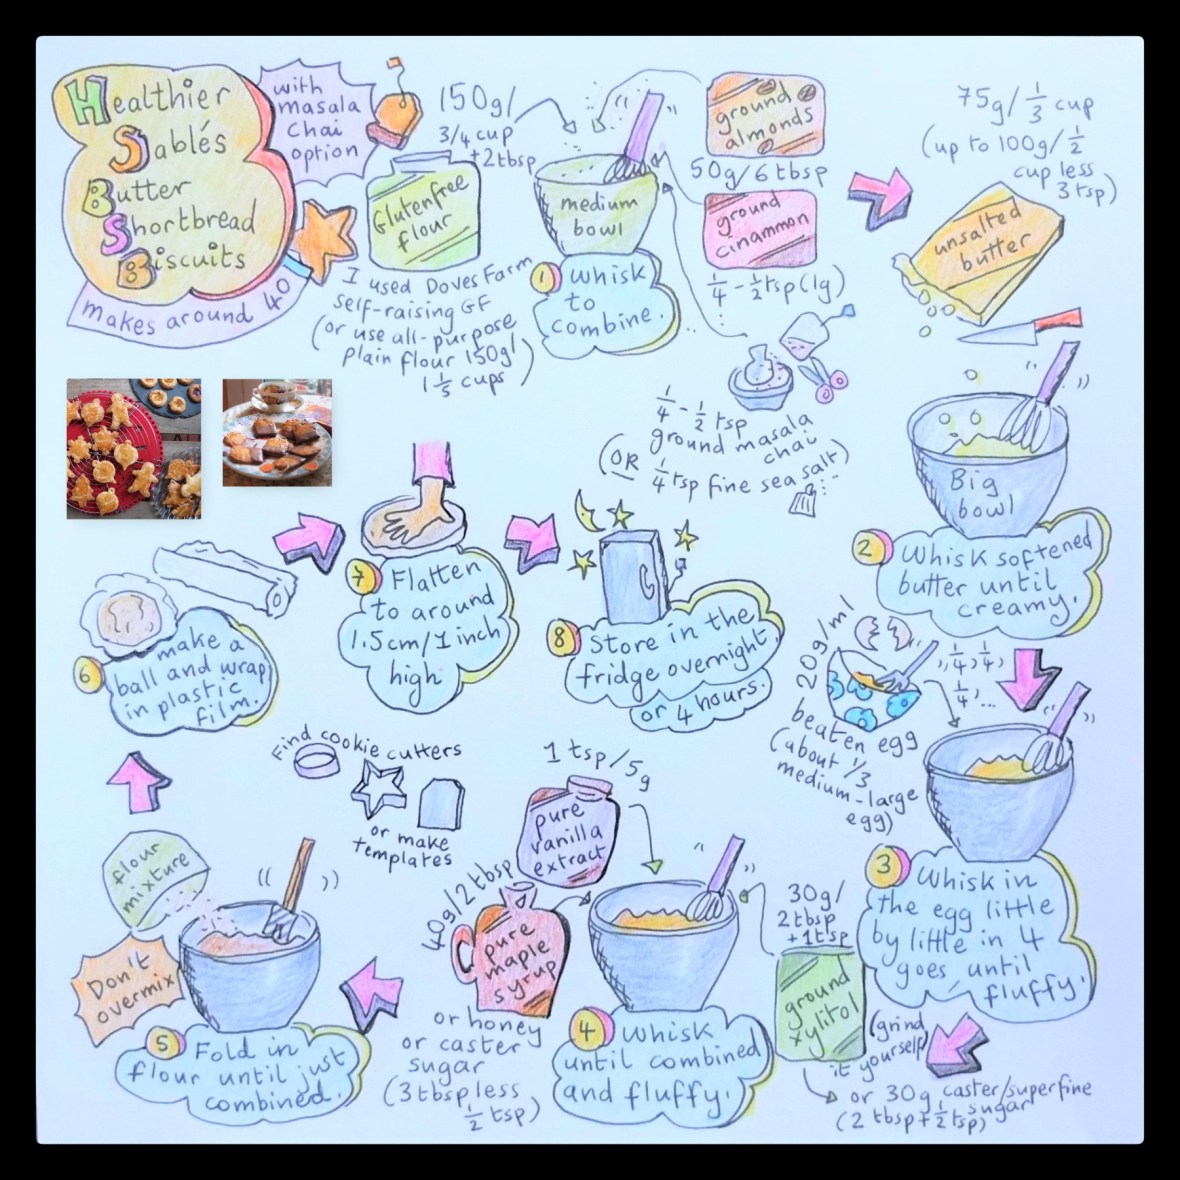 Healthier
Sablés
Butter
Shortbread
Biscuits
makes around 40
with
masala
chai
option
150g/
3/4 cup
+2tbsp
Glutenfree
flour
I used Doves Farm
self-raising GF
(or use all-purpose
plain flour 150g/
1 1/5 cups)
medium
bowl
1 Whisk
to
combine.
ground
almonds
50g/6 tbsp
ground
cinammon
1/4-1/2 tsp (1g)
1/4-1/2 tsp
ground masala
chai
(OR 1/4 tsp fine sea salt)
75g/1/3 cup
(up to 100g/1/2
cup less
3 tsp)
unsalted
butter
Big
bowl
2 Whisk softened
butter until
creamy.
20g/ml
beaten egg
(about 1/3
medium-large
egg)
1/4, 1/4,
1/4,...
3 Whisk in
the egg little
by little in 4
goes, until
fluffy.
1 tsp/5g
pure
vanilla
extract
40g/2 tbsp
pure
maple
syrup
or honey
or caster
sugar
(3 tbsp less
1/2 tsp)
30g/
2tbsp
+1tsp
ground
xylitol
(grind
it yourself)
or 30g caster/superfine
sugar
(2 tbsp+1/2 tsp)
4 Whisk
until combined
and fluffy.
flour
mixture
Don't
overmix
5 Fold in
flour until just
combined.
6 make a
ball and wrap
in plastic
film.
7 Flatten
to around
1.5cm/1 inch
high
8 Store in the
fridge overnight
or 4 hours.
Find cookie cutters
or make
templates